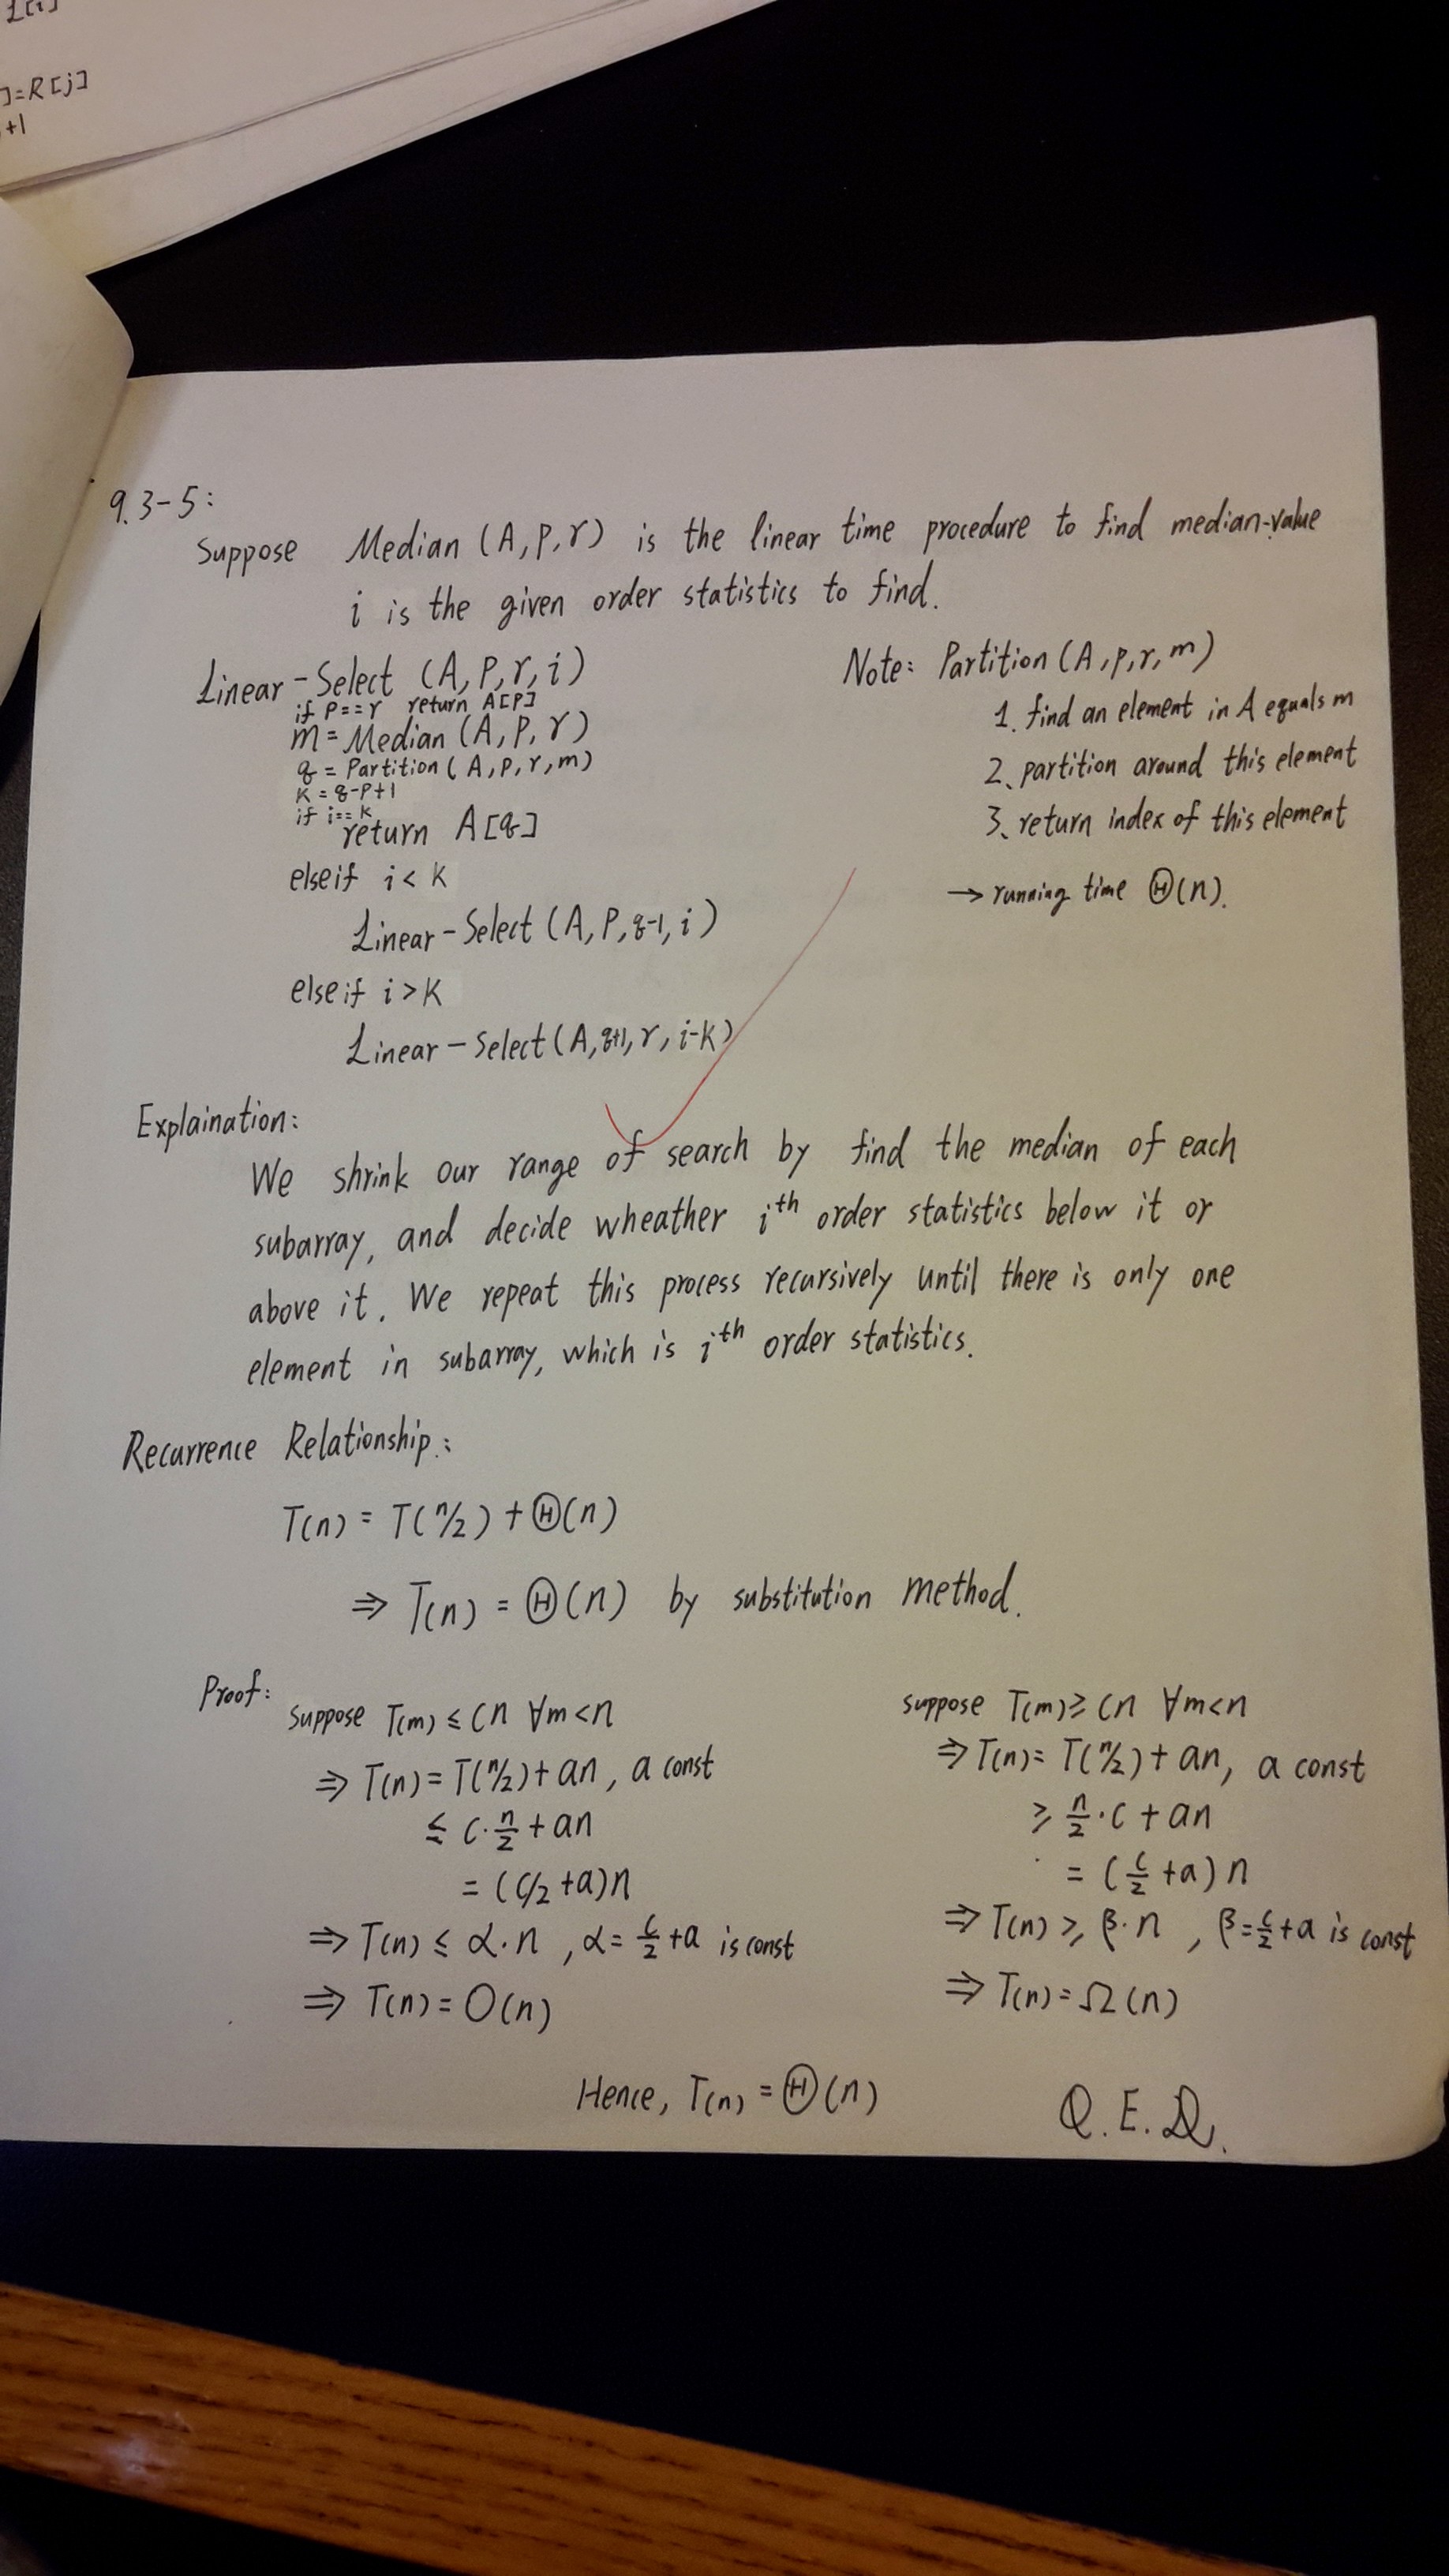 L[i]
]=R[j]
+1
9.3-5:
Suppose Median (A,P,r) is the linear time procedure to find median-value
i is the given order statistics to find.
Linear-Select (A,P,r,i)
if P==r return A[P]
m=Median (A,P,r)
q = Partition (A,P,r,m)
K = q-P+1
if i==K
return A[q]
elseif i<K
Linear-Select (A,P,q-1,i)
elseif i>K
Linear-Select(A,q+1,r,i-K)
Note: Partition (A,P,r,m)
1. find an element in A equals m
2. partition around this element
3. return index of this element
→ running time Θ(n).
Explaination:
We shrink our range of search by find the median of each
subarray, and decide wheather i^th order statistics below it or
above it. We repeat this process recursively until there is only one
element in subarray, which is i^th order statistics.
Recurrence Relationship:
T(n) = T(n/2) + Θ(n)
⇒ T(n) = Θ(n) by substitution method.
Proof: suppose T(m) ≤ cn ∀m<n
⇒ T(n) = T(n/2) + an, a const
≤ c·n/2 + an
= (c/2 + a)n
⇒ T(n) ≤ α·n , α = c/2 + a is const
⇒ T(n) = O(n)
suppose T(m) ≥ cn ∀m<n
⇒ T(n) = T(n/2) + an, a const
≥ n/2·c + an
= (c/2 + a)n
⇒ T(n) ≥ β·n , β = c/2 + a is const
⇒ T(n) = Ω(n)
Hence, T(n) = Θ(n) Q.E.D.